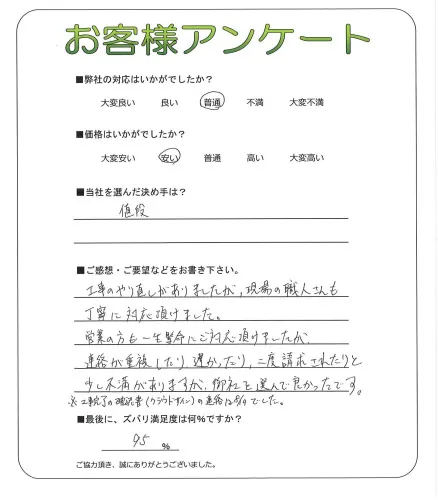 お客様アンケート
■弊社の対応はいかがでしたか？
大変良い 良い 普通 不満 大変不満
■価格はいかがでしたか？
大変安い 安い 普通 高い 大変高い
■当社を選んだ決め手は？
値段
■ご感想・ご要望などをお書き下さい。
工事のやり直しがありましたが、現場の職人さんも
丁寧に対応頂けました。
営業の方も一生懸命にご対応頂けましたが、
連絡が重複したり、遅かったり、二度請求されたりと
少し不満がありますが、御社を選んで良かったです。
※工事完了の確認書(クラウドサイン)の連絡は
■最後に、ズバリ満足度は何%ですか？
95 %
ご協力頂き、誠にありがとうございました。